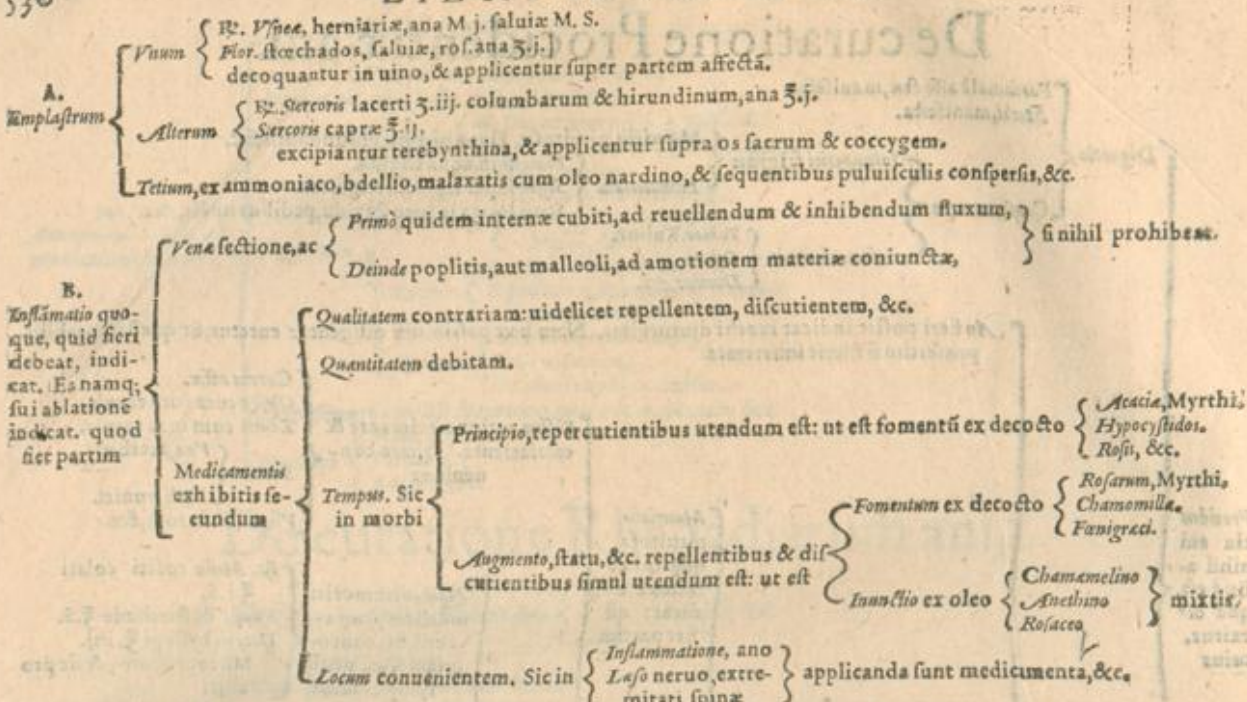 A.
Emplaſtrum
Vnum
℞. Vſneæ, herniariæ, ana M j. ſaluiæ M. S.
Flor. ſtœchados, ſaluiæ, roſ. ana ʒ.j.
decoquantur in uino, & applicentur ſuper partem affectã.
Alterum
℞. Stercoris lacerti ʒ.iij. columbarum & hirundinum, ana ℥.j.
Stercoris capræ ℥.ij.
excipiantur terebynthina, & applicentur ſupra os ſacrum & coccygem.
Tetium, ex ammoniaco, bdellio, malaxatis cum oleo nardino, & ſequentibus puluiſculis conſperſis, &c.
B.
Inflãmatio quo-
que, quid fieri
debeat, indi-
cat. Ea namq;
ſui ablationē
indicat. quod
fiet partim
Venæ ſectione, ac
Primò quidem internæ cubiti, ad reuellendum & inhibendum fluxum,
Deinde poplitis, aut malleoli, ad amotionem materiæ coniunctæ,
ſi nihil prohibeat.
Medicamentis
exhibitis ſe-
cundum
Qualitatem contrariam: uidelicet repellentem, diſcutientem, &c.
Quantitatem debitam.
Tempus. Sic
in morbi
Principio, repercutientibus utendum eſt: ut eſt fomentũ ex decocto
Acaciæ, Myrthi,
Hypocyſtidos.
Roſis, &c.
Augmento, ſtatu, &c. repellentibus & diſ-
cutientibus ſimul utendum eſt: ut eſt
Fomentum ex decocto
Roſarum, Myrthi,
Chamomillæ.
Fœnigræci.
Inunctio ex oleo
Chamæmelino
Anethino
Roſaceo
mixtis.
Locum conuenientem. Sic in
Inflammatione, ano
Læſo neruo, extre-
mitati ſpinæ
applicanda ſunt medicamenta, &c.